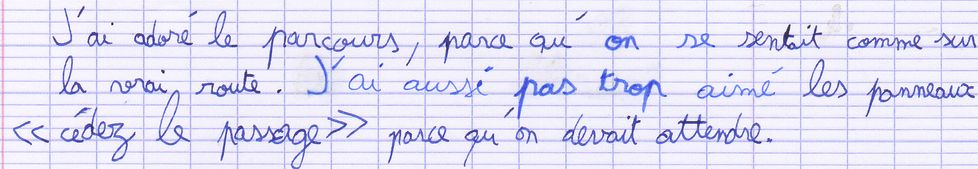 J'ai adoré le parcours, parce qu'on se sentait comme sur
la vrai route. J'ai aussi pas trop aimé les panneaux
<<cédez le passage>> parce qu'on devait attendre.